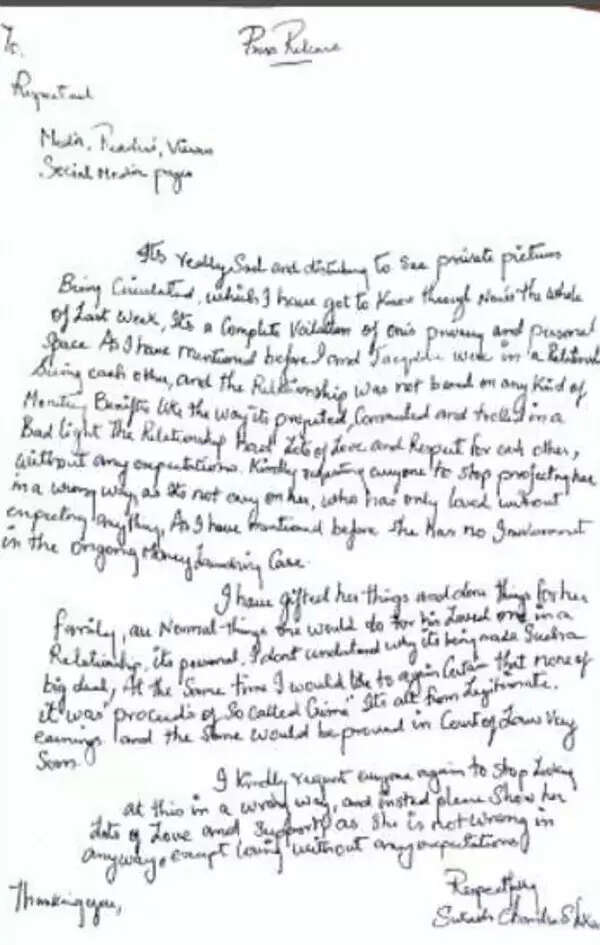 To,
Press Release
Respected
Media, Readers, Viewers
Social Media pages
Its really Sad and disturbing to see private pictures
Being Circulated, which I have got to Know through News the whole
of Last week, Its a Complete Voilation of one's privacy and personal
Space As I have mentioned before I and were in a Relationsh
each other, and the Relationship was not based on any Kind of
Benifits like the way its projected, Commented and trolled in a
Bad light The Relationship Had Lots of Love and Respect for each other,
without any expectations. Kindly anyone to stop projecting her
in a wrong way, as its not easy on her, who has only loved without
expecting anything, As I have mentioned before She has no
in the ongoing Money Case.
I have gifted her things and done things for her
family, are Normal things one would do for his Loved one in a
Relationship, its personal. I dont understand why its being made Such a
big deal, At the Same time I would like to again that none of
it was "proceeds of So called Crime" Its all from Legitimate
earnings and the Same would be proved in Court of Law Very
Soon.
I Kindly request anyone again to Stop Looking
at this in a wrong way, and insted please Show her
Lots of Love and Support, as She is not wrong in
anyway, except loving without any expectations
Thanking you,
Respectfully
Chandra